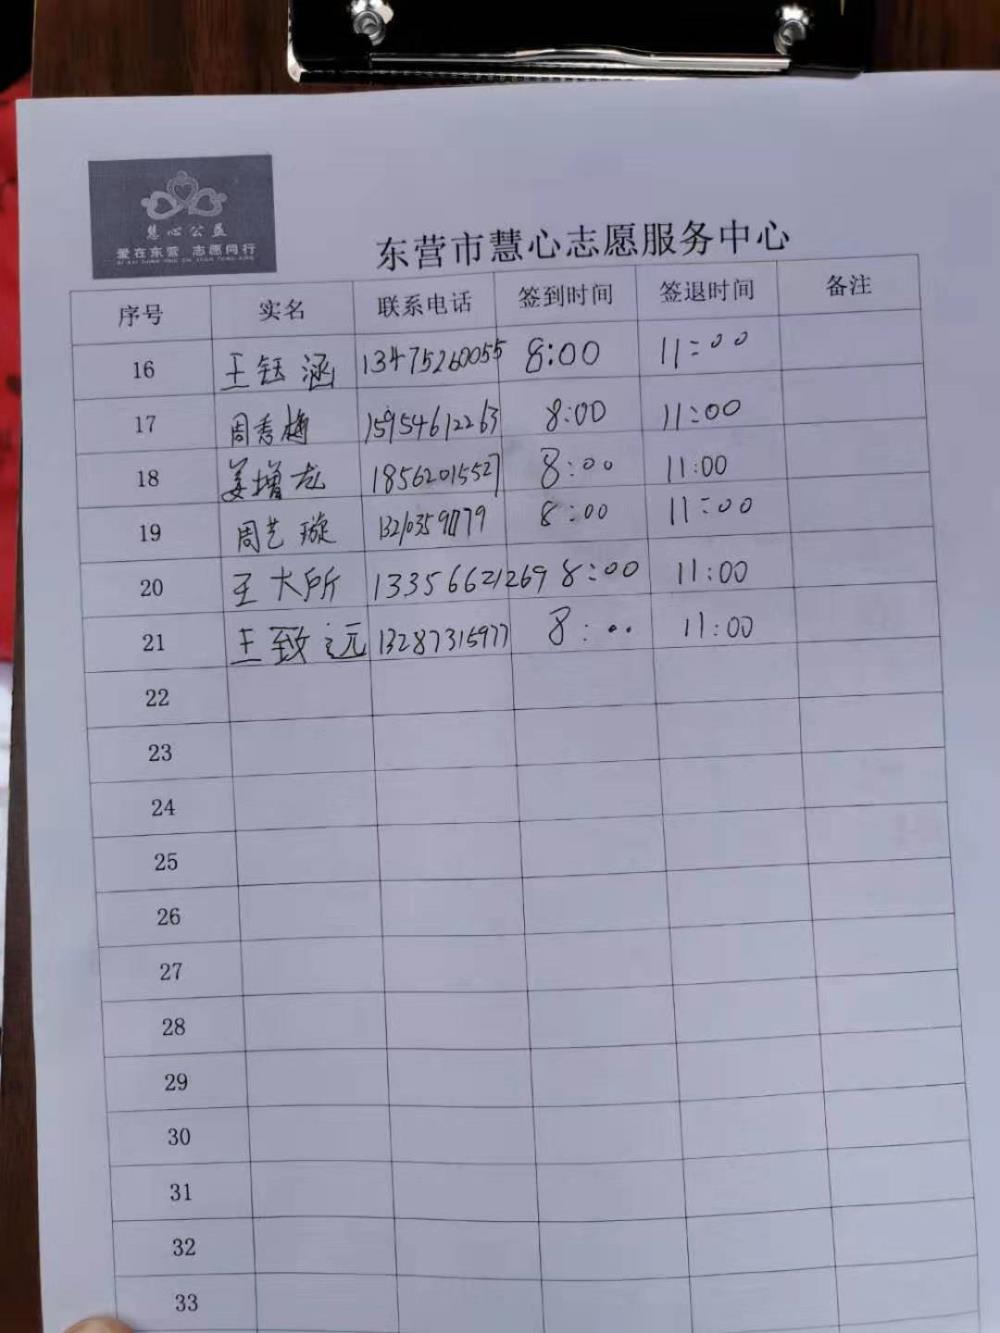 慧心公益
爱在东营 志愿同行
东营市慧心志愿服务中心
序号 实名 联系电话 签到时间 签退时间 备注
16 王钰涵 13475260055 8:00 11:00
17 周秀梅 15954612263 8:00 11:00
18 姜增龙 18562015527 8:00 11:00
19 周艺璇 8:00 11:00
20 王大所 13356621269 8:00 11:00
21 王致远 13287315977 8:00 11:00
22
23
24
25
26
27
28
29
30
31
32
33